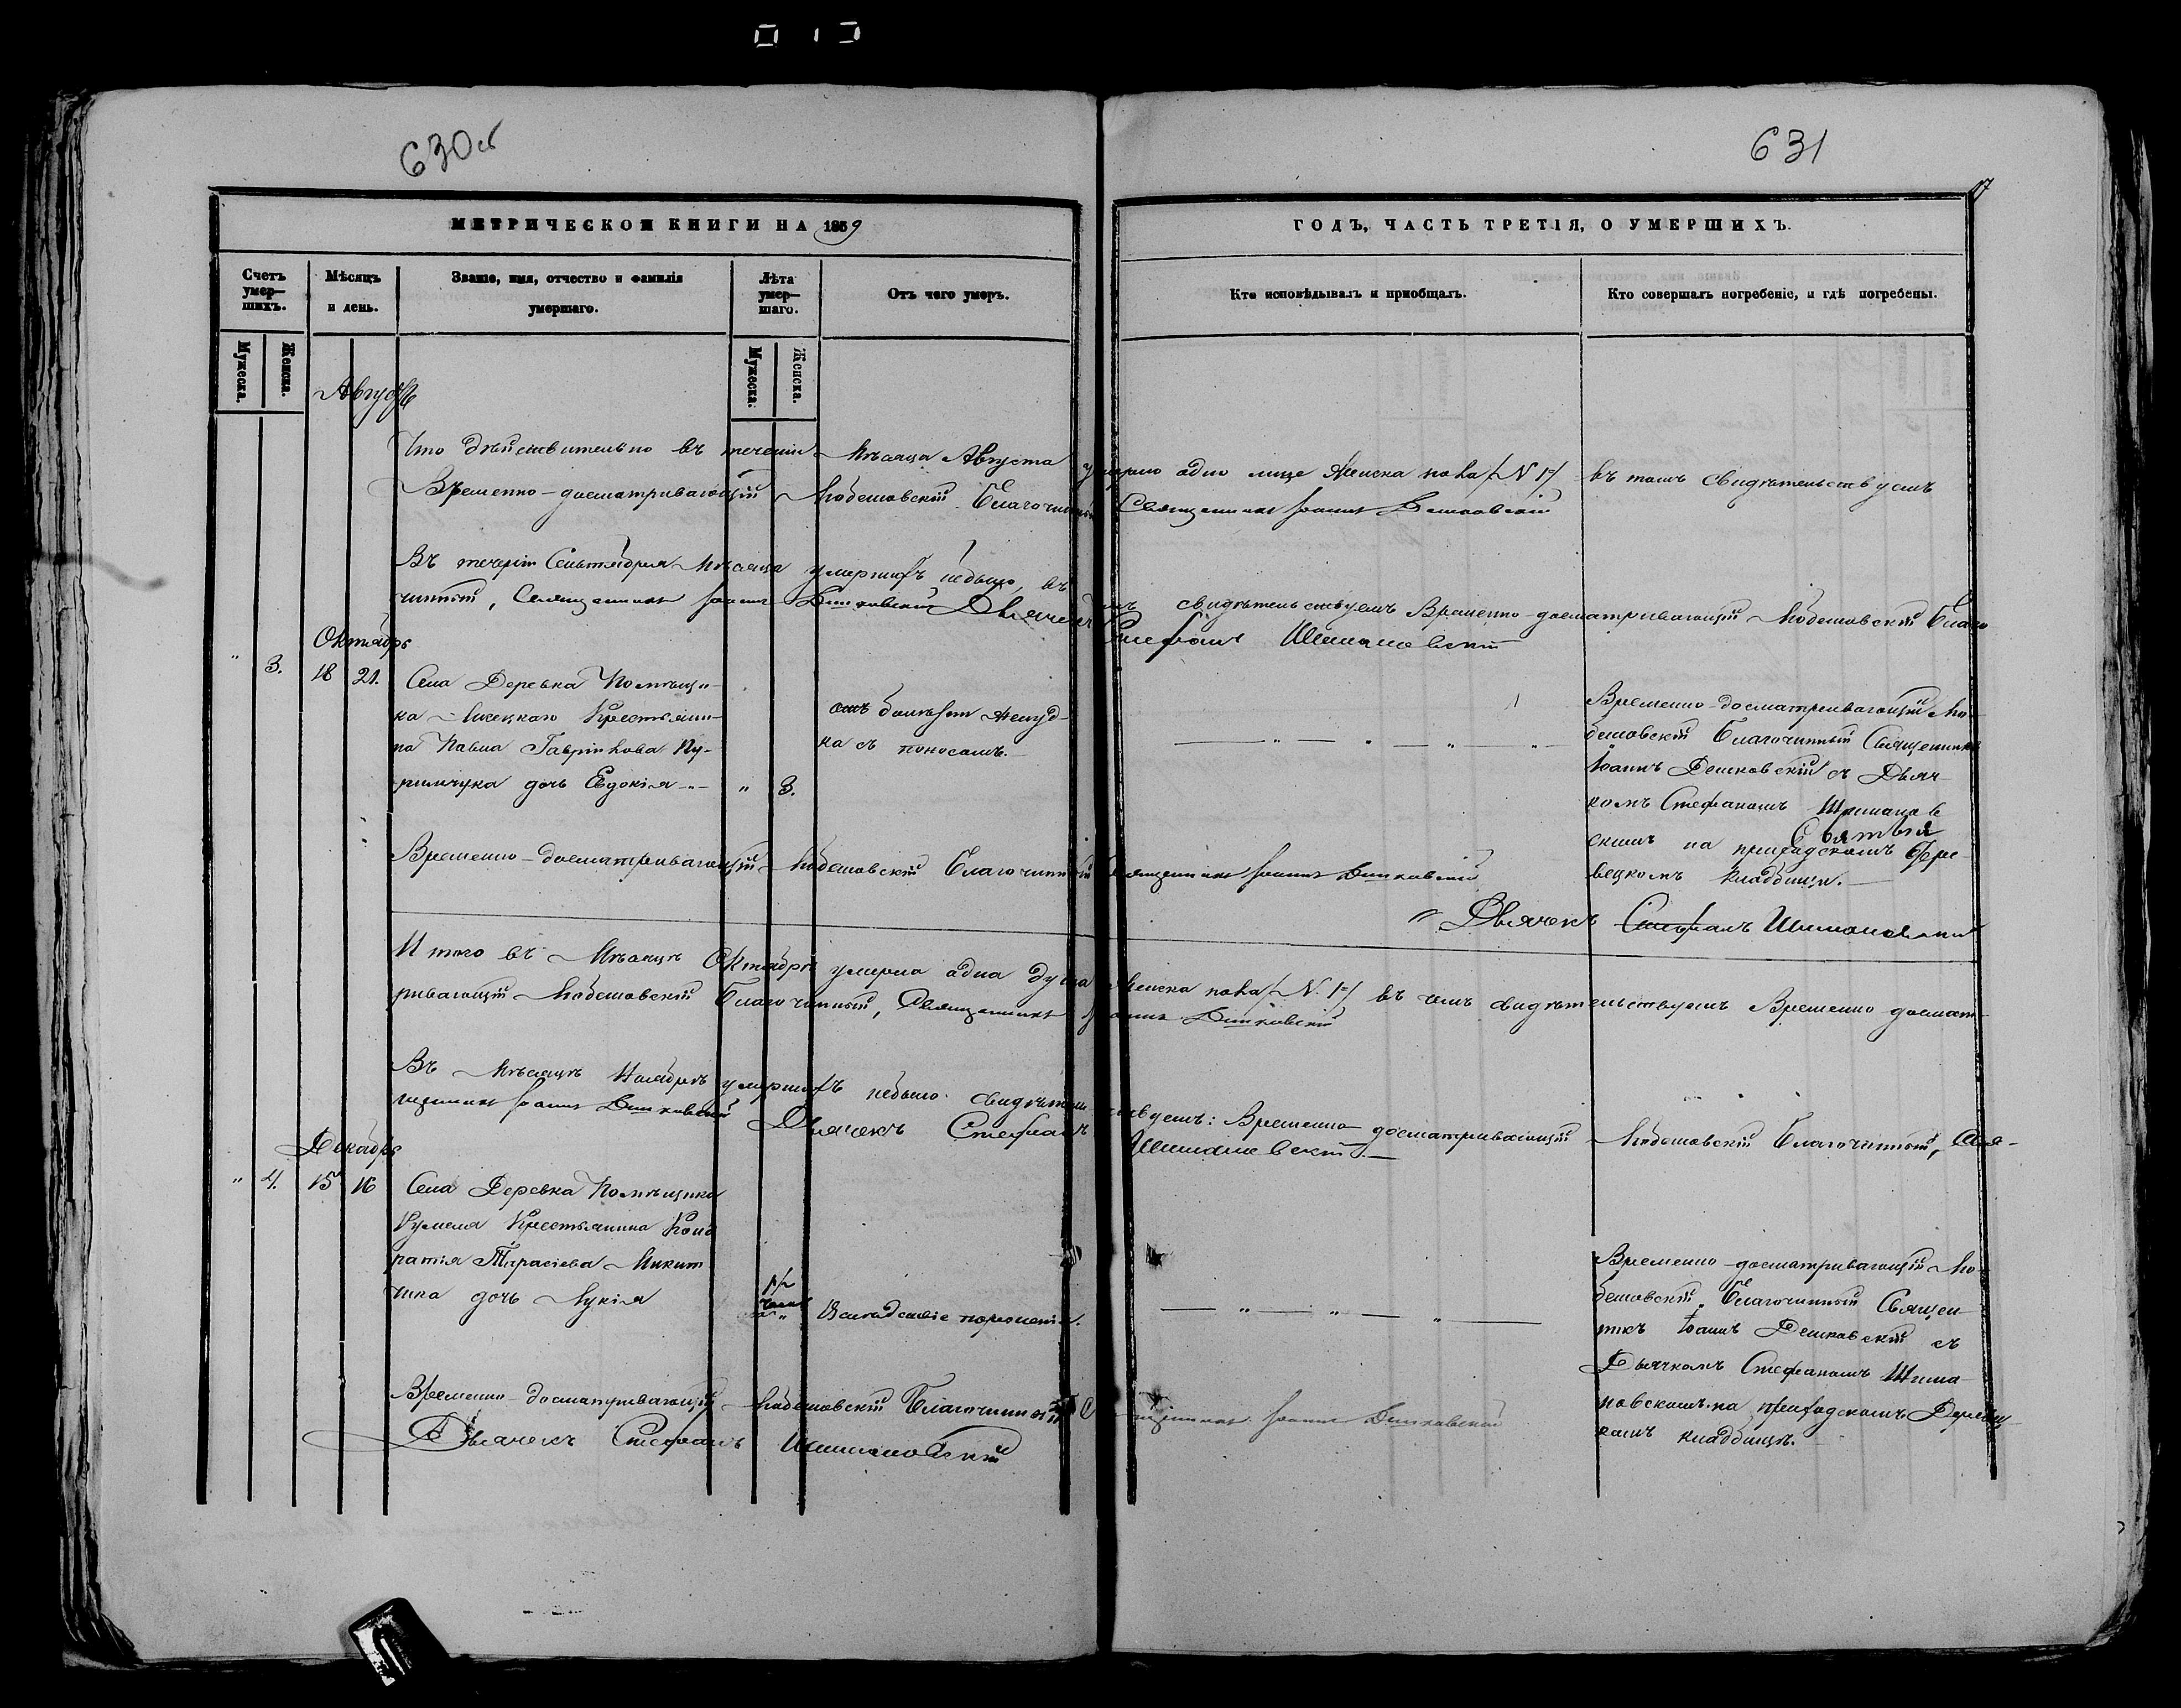 630 об
631
17
МЕТРИЧЕСКОЙ КНИГИ НА 1859
ГОДЪ, ЧАСТЬ ТРЕТІЯ, О УМЕРШИХЪ.
Счетъ умер— шихъ.
Мѣсяцъ и день.
Званіе, имя, отчество и фамилія умершаго.
Лѣта умер— шаго.
Отъ чего умеръ.
Кто исповѣдывалъ и пріобщалъ.
Кто совершалъ погребеніе, и гдѣ погребены.
Мужеска.
Женска.
Мужеска.
Женска.
Августъ
Что дѣйствительно въ теченіи Мѣсяца Августа умерло одно лице Женска пола /N 1/ въ томъ свидѣтельствуемъ
Временно-досматривающій Любешовскій Благочинный Священникъ Іоаннъ Дешковскій
Въ теченіи Сентября Мѣсяца умершихъ небыло, въ томъ свидѣтельствуемъ Временно-досматривающій Любешовскій Благо
чинный, Священникъ Іоаннъ Дешковскій Дьячекъ Стефанъ Шимановскій
Октябрь
" 3. 18 21.
Села Деревка Помѣщи-
ка Лисецкаго Крестьяни-
на Павла Гаврiилова Ку-
римчука дочь Евдокія -"-
" 3.
отъ болѣзни желуд-
ка съ поносомъ.
— " — " — " — " —
Временно-досматривающій Лю-
бешовскій Благочинный Священникъ
Іоаннъ Дешковскій съ Дьяч-
комъ Стефаномъ Шиманов
скимъ на приходскомъ Дере-
вецкомъ кладбищѣ.
Временно-досматривающій Любешовскій Благочинный Священникъ Іоаннъ Дешковскій
Дьячекъ Стефанъ Шимановскій
Итого въ Мѣсяцѣ Октябрѣ умерла одна душа Женска пола /N. 1/ въ чемъ свидѣтельствуемъ Временно досмат-
ривающій Любешовскій Благочинный, Священникъ Іоаннъ Дешковскій
Въ Мѣсяцѣ Ноябрѣ умершихъ небыло. свидѣтельствуемъ: Временно досматривающій Любешовскій Благочинный, Свя-
щенникъ Іоаннъ Дешковскій Дьячекъ Стефанъ Шимановскій.—
Декабрь
" 4. 15 16
Села Деревка Помѣщика
Кумеля Крестьянина Конд
ратія Тарасіева Микит
чика дочь Лукія
— " — " — " —
Временно-досматривающій Лю-
бешовскій Благочинный Священ-
никъ Іоаннъ Дешковскій съ
Дьячкомъ Стефаномъ Шима-
новскимъ на приходскомъ Деревец-
комъ кладбищѣ.
Временно-досматривающій Любешовскій Благочинный Священникъ Іоаннъ Дешковскій
Дьячекъ Стефанъ Шимановскій